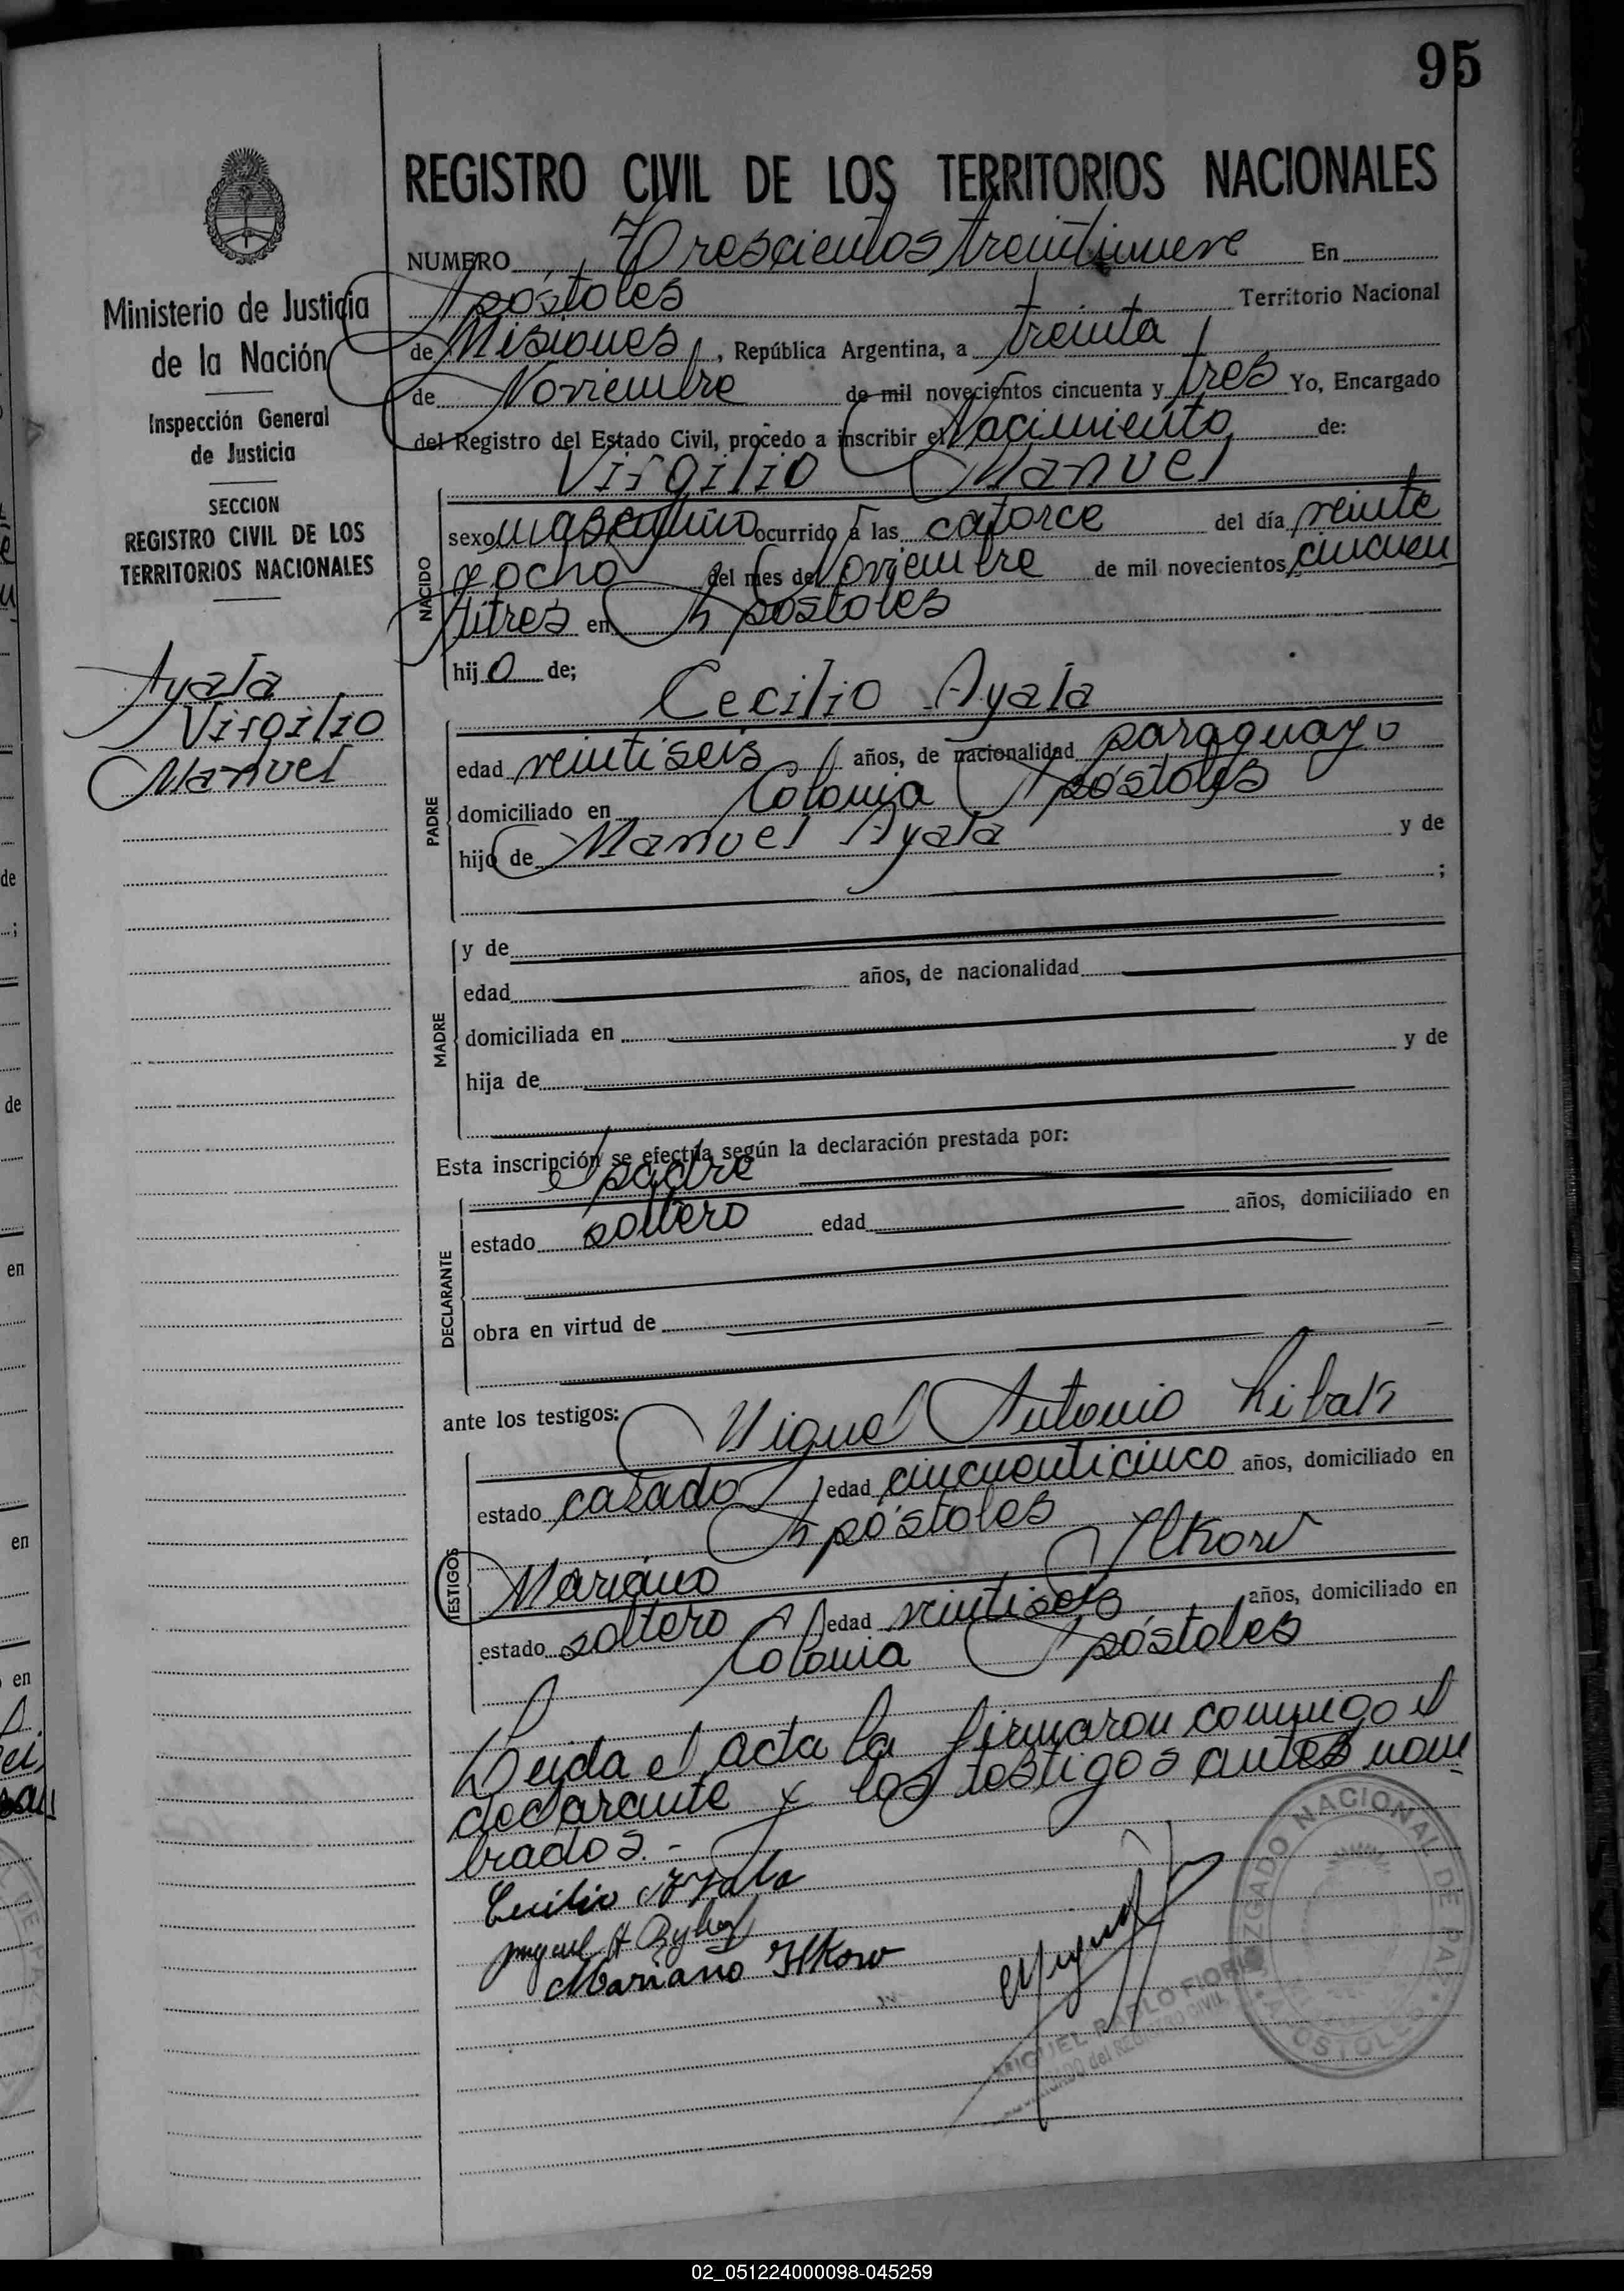 95
REGISTRO CIVIL DE LOS TERRITORIOS NACIONALES
Ministerio de Justicia
de la Nación
Inspección General
de Justicia
SECCION
REGISTRO CIVIL DE LOS
TERRITORIOS NACIONALES
Ayala
Virgilio
Manuel
NUMERO Trescientos treintinueve En
Apóstoles Territorio Nacional
de Misiones, República Argentina, a treinta
de Noviembre de mil novecientos cincuenta y tres Yo, Encargado
del Registro del Estado Civil, procedo a inscribir el Nacimiento de:
Virgilio Manuel
NACIDO
sexo masculino ocurrido a las catorce del día veinte
y ocho del mes de Noviembre de mil novecientos cincuen
titres en Apóstoles
hijo de;
Cecilio Ayala
PADRE
edad veintiseis años, de nacionalidad paraguayo
domiciliado en Colonia Apóstoles
hijo de Manuel Ayala y de
;
MADRE
y de
edad años, de nacionalidad
domiciliada en
hija de y de
Esta inscripción se efectúa según la declaración prestada por:
el padre
DECLARANTE
estado soltero edad años, domiciliado en
obra en virtud de
ante los testigos: Miguel Antonio Ribak
TESTIGOS
estado casado edad cincuenticinco años, domiciliado en
Apóstoles
Mariano Ilkow
estado soltero edad veintiseis años, domiciliado en
Colonia Apóstoles
Leida el acta la firmaron conmigo el
declarante y los testigos antes nom
brados.-
Cecilio Ayala
Miguel A
Mariano Ilkow
MIGUEL PABLO FIORI
ENCARGADO del REGISTRO CIVIL
JUZGADO NACIONAL DE PAZ
APOSTOLES
02_051224000098-045259